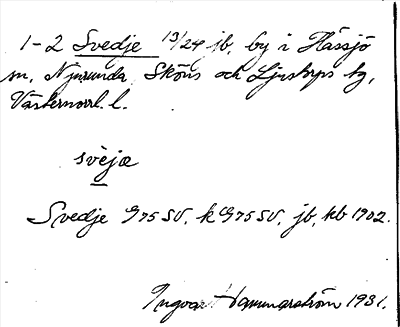 1-2 Svedje 13/24 jb, by i Hässjö
m, Njurunda Sköns och Ljustorps tg,
Västernorrl. l.
svèjæ
Svedje G75SV. k G75SV. jb, kb 1902.
Ingvar Hammarström 1931.